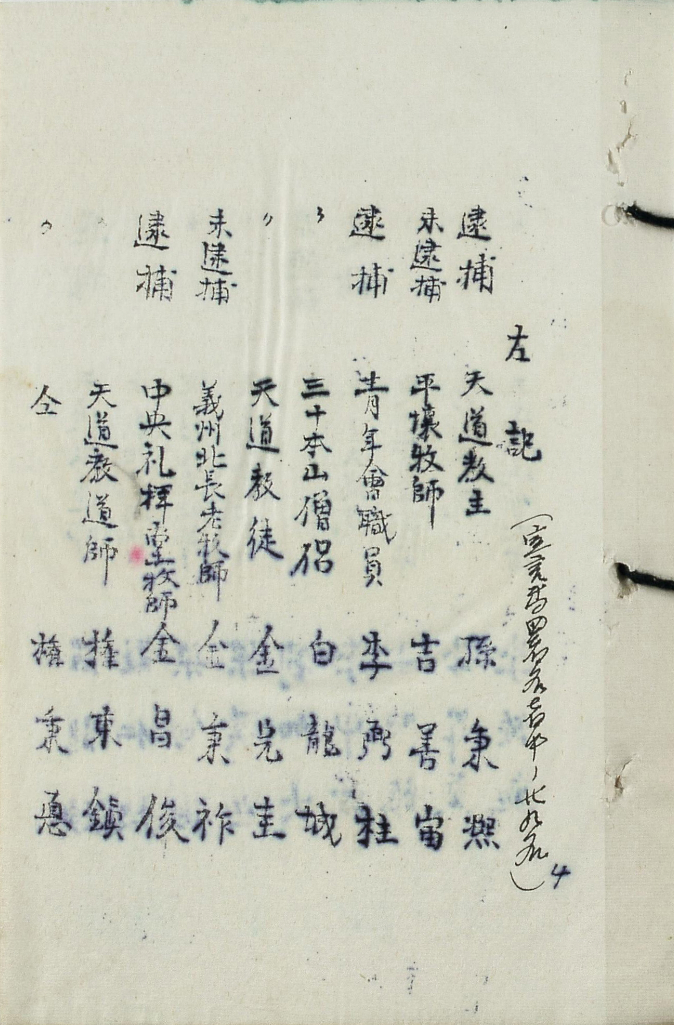 (宣言書署名者中ノ廿九名)
4
左記
逮捕 天道教主 孫秉熙
未逮捕 平壌牧師 吉善宙
逮捕 青年會職員 李弼柱
〃 三十本山僧侶 白龍城
〃 天道教徒 金完圭
未逮捕 義州北長老牧師 金秉祚
逮捕 中央礼拝堂牧師 金昌俊
〃 天道教道師 權東鎮
〃 仝 權秉悳